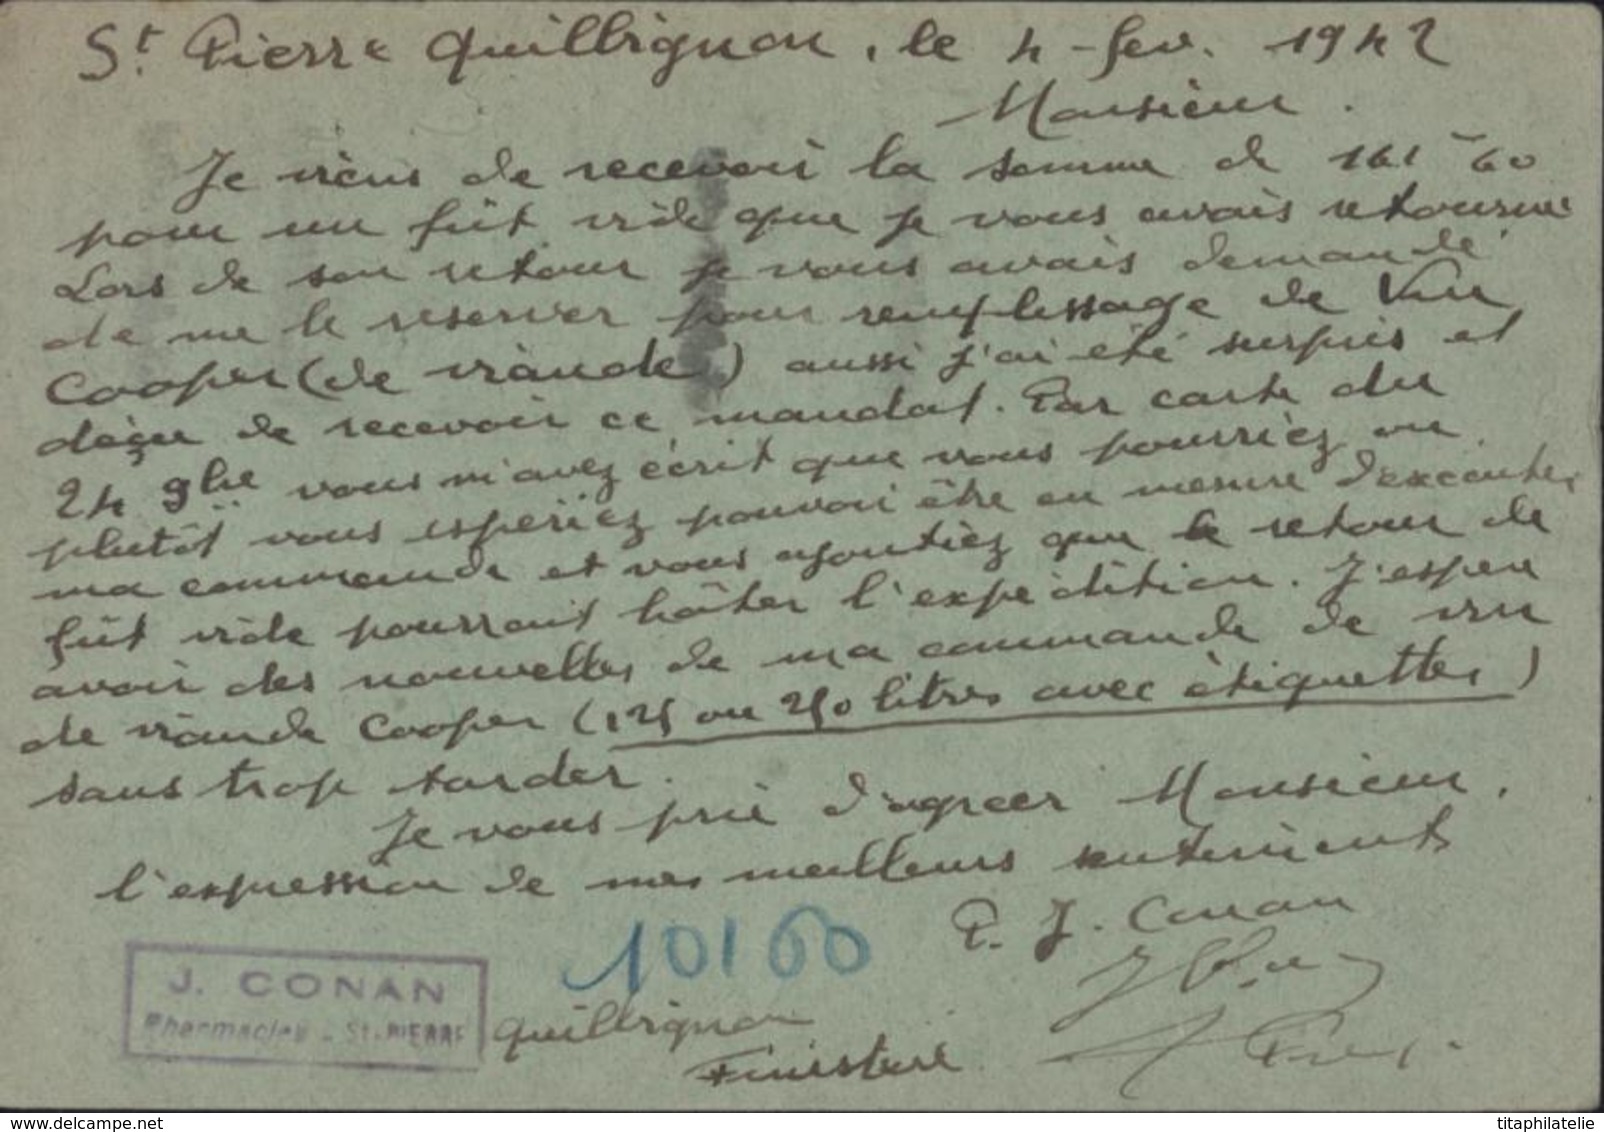 St Pierre Quilbignon, le 4 fev. 1942
Monsieur.
Je viens de recevoir la somme de 161 60
pour un fût vide que je vous avais retourné
Lors de son retour je vous avais demandé
de me le reserver pour remplissage de Vin
Cooper (de viande) aussi j'ai été surpris et
déçu de recevoir ce mandat. Par carte du
24 9bre vous m'avez écrit que vous pourriez ou
plutôt vous espériez pouvoir être en mesure d'exécuter
ma commande et vous ajoutiez que le retour de
fût vide pourrait hâter l'expédition. J'espère
avoir des nouvelles de ma commande de vin
de viande Cooper (125 ou 250 litres avec étiquettes)
sans trop tarder.
Je vous prie d'agreer Monsieur,
l'expression de mes meilleurs sentiments
P. J. Conan
10160
J. CONAN
Pharmacien - St-PIERRE
Quilbignon
Finistère
delcampe.net
titaphilatelie